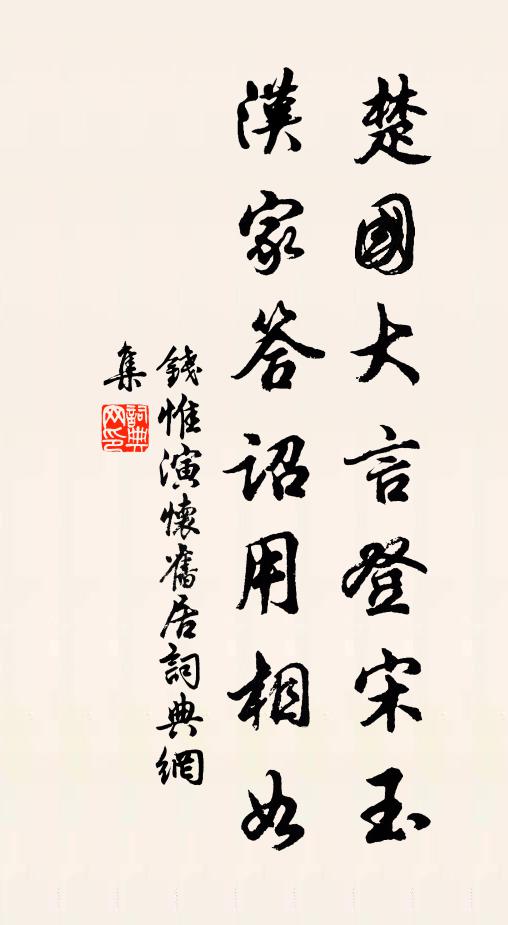 楚國大言登宋玉
漢家答詔用相如
錢惟演懷舊居詞典網
集
詞典网印